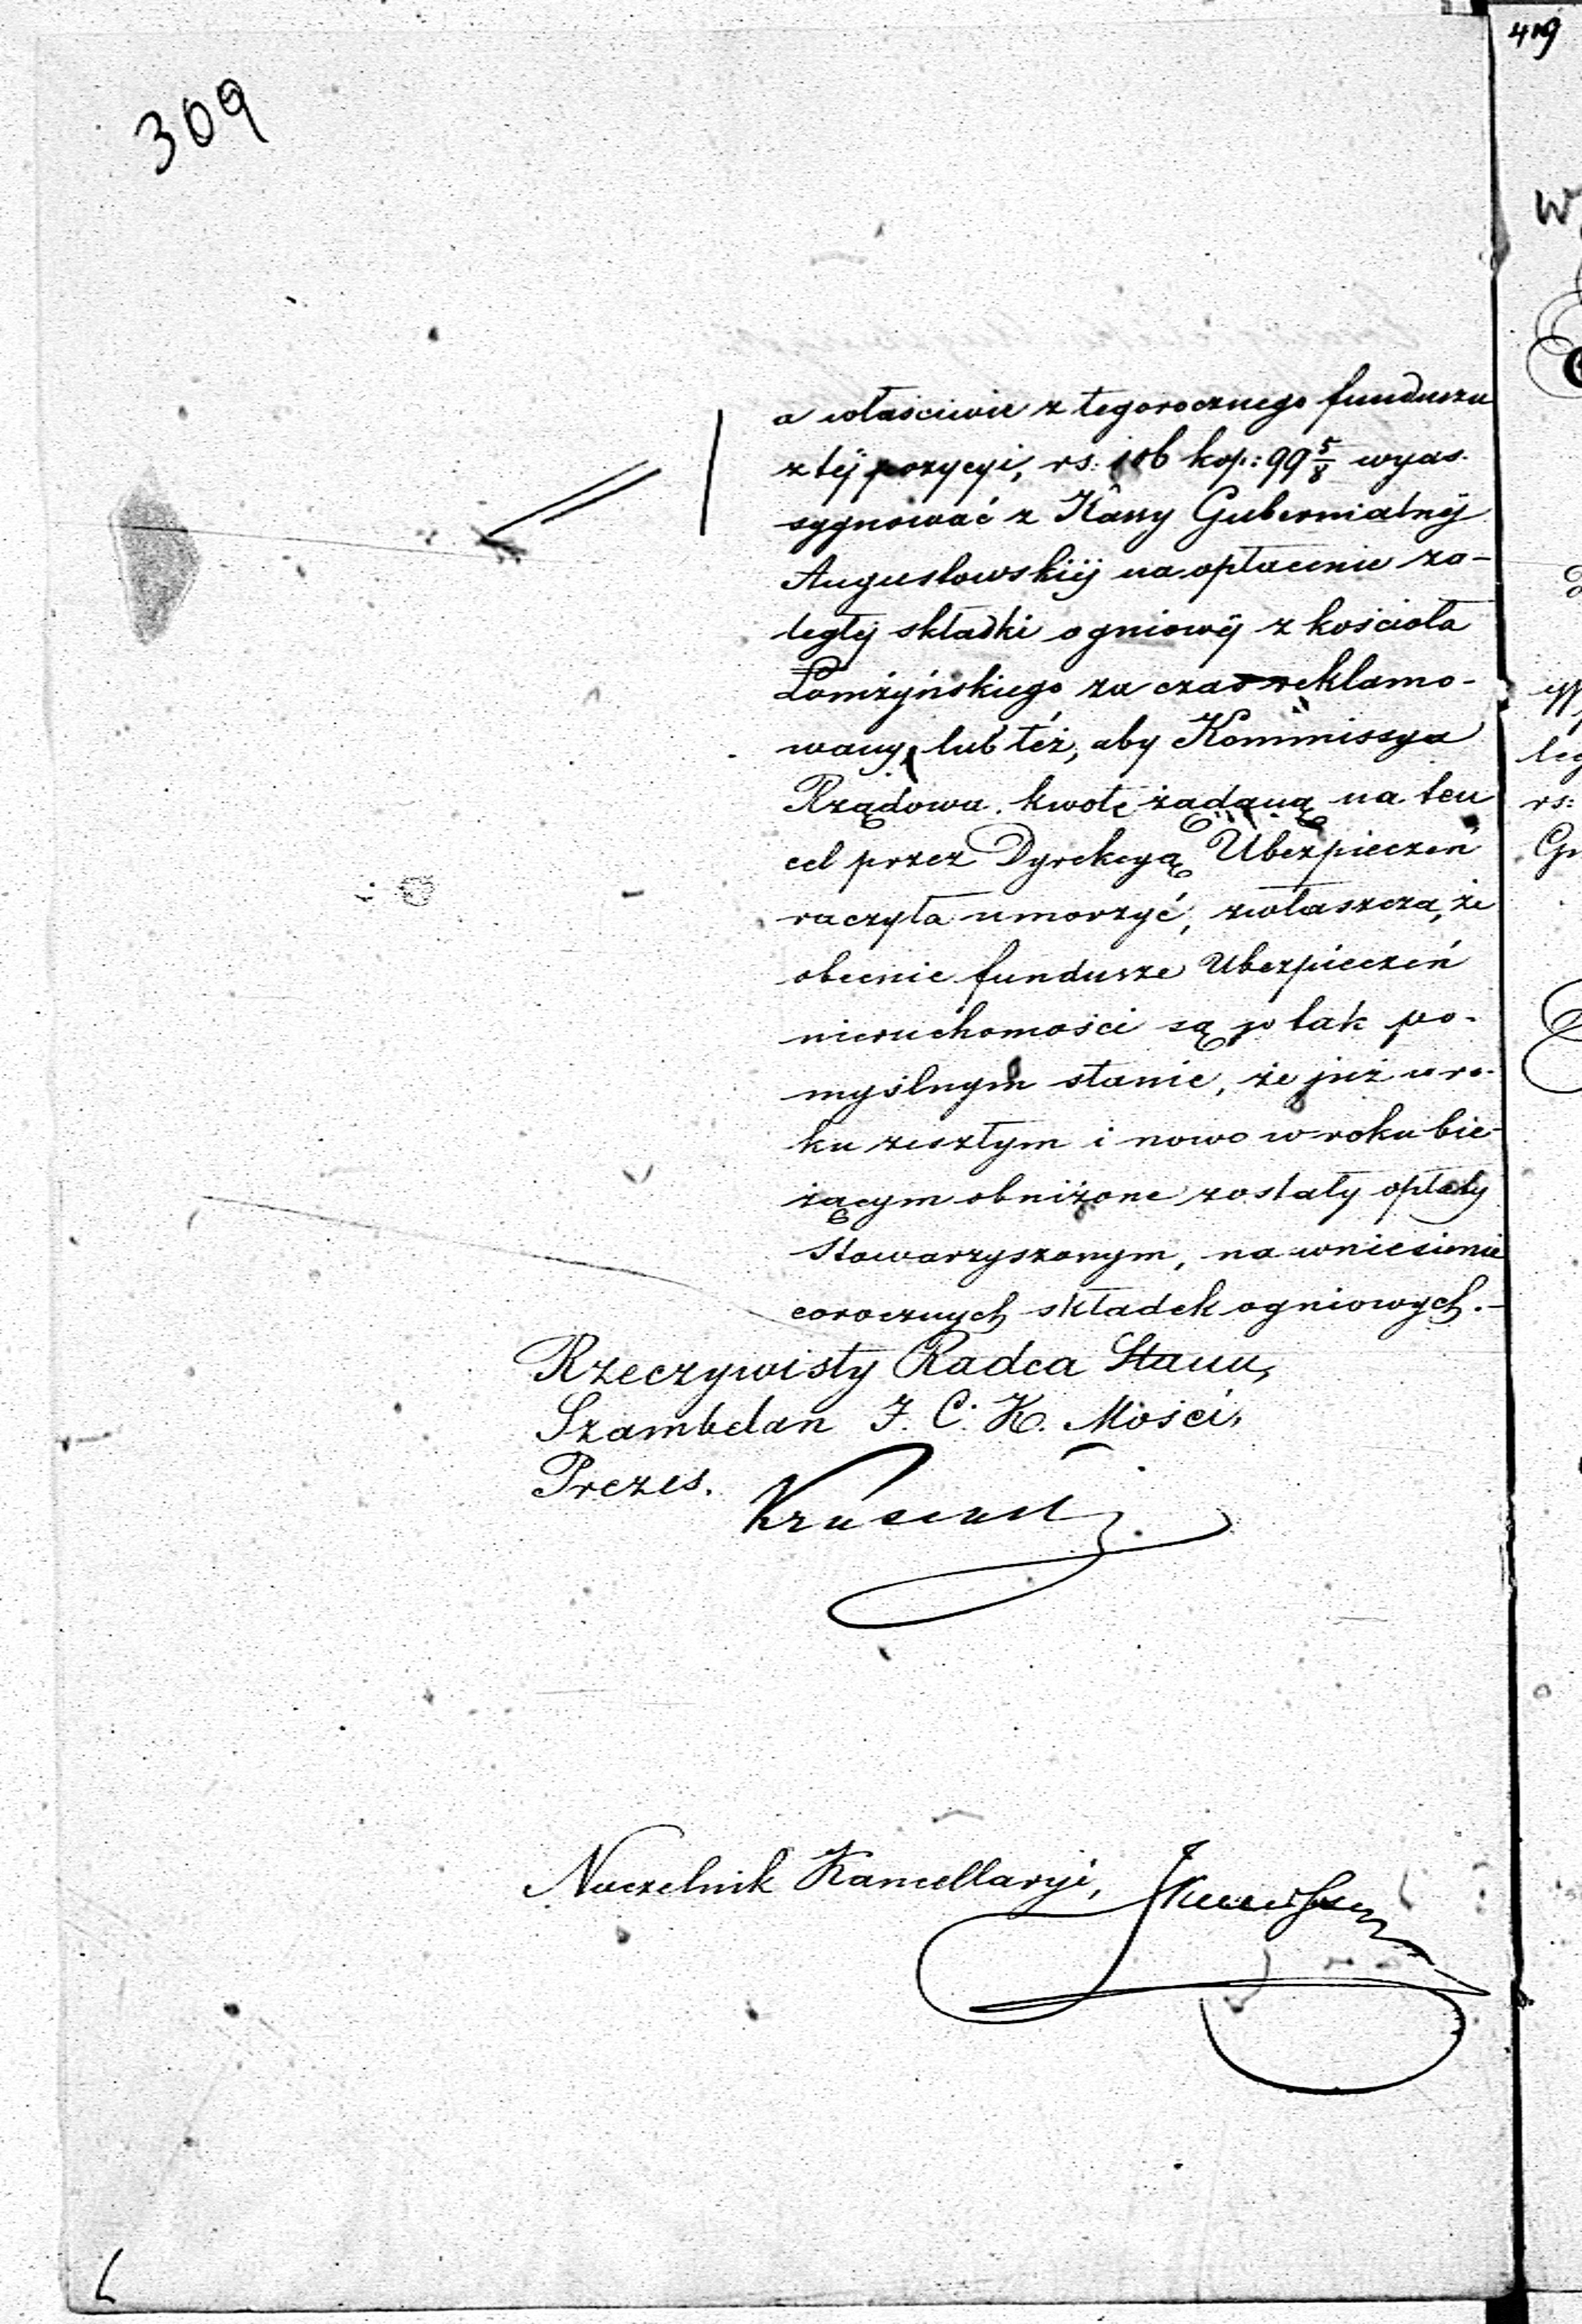 309
a właściwie z tegorocznego funduszu
z téj pozycyi, rs: 106 kop: 99 5/8 wyas-
sygnować z Kassy Gubernialnéj
Augustowskiéj na opłacenie za-
ległéj składki ogniowéj z kościoła
Łomżyńskiego za czas reklamo-
wany, lub téż, aby Kommissya
Rządowa kwotę żądaną na ten
cel przez Dyrekcyą Ubezpieczeń
raczyła umorzyć, zwłaszcza, że
obecnie fundusze Ubezpieczeń
nieruchomości są w tak po-
myślnym stanie, że już w ro-
ku zeszłym i nowo w roku bie-
żącym obniżone zostały opłaty
Stowarzyszonym, na wniesienie
corocznych składek ogniowych.-
Rzeczywisty Radca Stanu,
Szambelan J. C. K. Mości,
Prezes.
Naczelnik Kancellaryi,